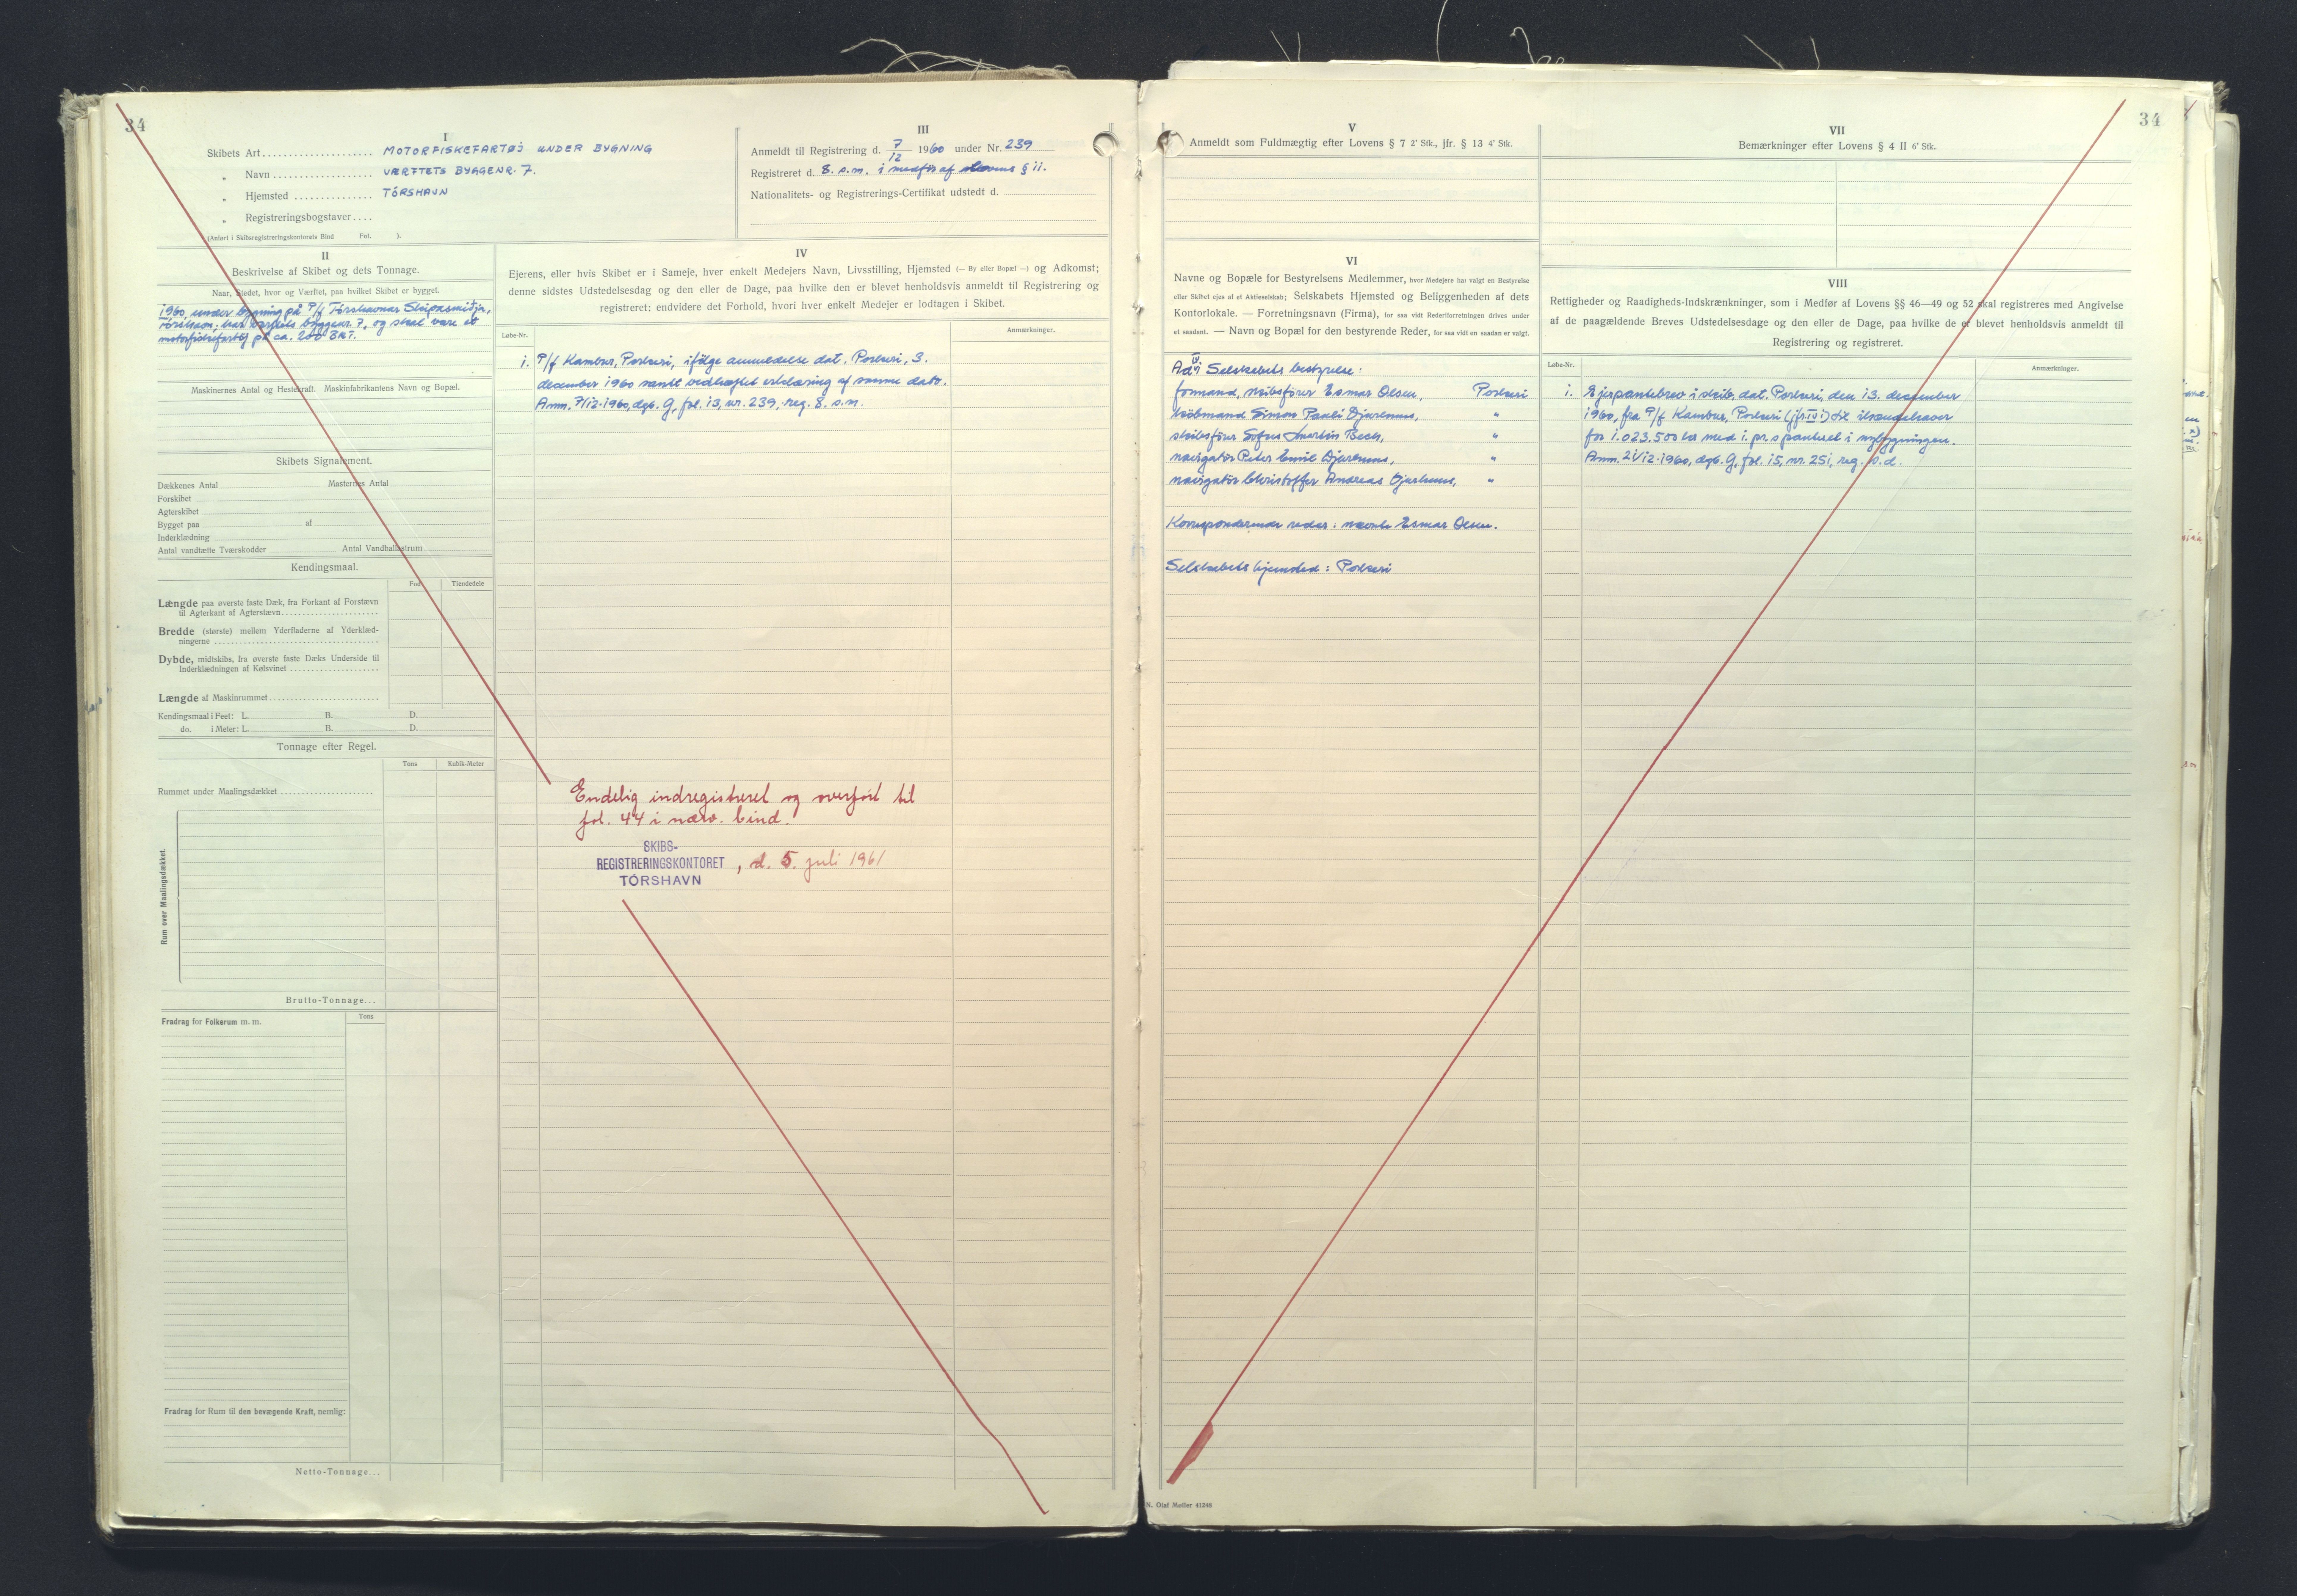 34
I
Skibets Art.................... MOTORFISKEFARTØJ UNDER BYGNING
" Navn.................. VÆRFTETS BYGGENR. 7.
" Hjemsted ............... TÓRSHAVN
" Registreringsbogstaver....
(Anført i Skibsregistreringskontorets Bind Fol. ).
III
Anmeldt til Registrering d. 7/12 1960 under Nr. 239
Registreret d. 8. s.m. i medfør af lovens § 11.
Nationalitets- og Registrerings-Certifikat udstedt d.
II
Beskrivelse af Skibet og dets Tonnage.
Naar, Stedet, hvor og Værftet, paa hvilket Skibet er bygget.
1960, under bygning på P/f Tórshavnar Skipasmiðja,
Tórshavn; har værftets byggenr. 7, og skal være et
motorfiskefartøj på ca. 200 BRT.
Maskinernes Antal og Hestekraft. Maskinfabrikantens Navn og Bopæl.
Skibets Signalement.
Dækkenes Antal Masternes Antal
Forskibet
Agterskibet
Bygget paa af
Inderklædning
Antal vandtætte Tværskodder Antal Vandballastrum
Kendingsmaal.
Fod Tiendedele
Længde paa øverste faste Dæk, fra Forkant af Forstævn
til Agterkant af Agterstævn
Bredde (største) mellem Yderfladerne af Yderklæd-
ningerne
Dybde, midtskibs, fra øverste faste Dæks Underside til
Inderklædningen af Kølsvinet
Længde af Maskinrummet
Kendingsmaal i Feet: L. B. D.
do. i Meter: L. B. D.
Tonnage efter Regel.
Tons Kubik-Meter
Rummet under Maalingsdækket
Rum over Maalingsdækket.
Brutto-Tonnage...
Fradrag for Folkerum m. m.
Tons
Fradrag for Rum til den bevægende Kraft, nemlig:
Netto-Tonnage...
IV
Ejerens, eller hvis Skibet er i Sameje, hver enkelt Medejers Navn, Livsstilling, Hjemsted (— By eller Bopæl —) og Adkomst;
denne sidstes Udstedelsesdag og den eller de Dage, paa hvilke den er blevet henholdsvis anmeldt til Registrering og
registreret: endvidere det Forhold, hvori hver enkelt Medejer er lodtagen i Skibet.
Løbe-Nr. Anmærkninger.
1. P/f Kambur, Porkeri, ifølge anmeldelse dat. Porkeri, 3.
december 1960 samt vedhæftet erklæring af samme dato.
Anm. 7/12-1960, dgb. G, fol. 13, nr. 239, reg. 8. s.m.
Endelig indregistreret og overført til
fol. 44 i nærv. bind.
SKIBS-
REGISTRERINGSKONTORET , d. 5. juli 1961
TÓRSHAVN
V
Anmeldt som Fuldmægtig efter Lovens § 7 2' Stk., jfr. § 13 4' Stk.
VI
Navne og Bopæle for Bestyrelsens Medlemmer, hvor Medejere har valgt en Bestyrelse
eller Skibet ejes af et Aktieselskab; Selskabets Hjemsted og Beliggenheden af dets
Kontorlokale. — Forretningsnavn (Firma), for saa vidt Rederiforretningen drives under
et saadant. — Navn og Bopæl for den bestyrende Reder, for saa vidt en saadan er valgt.
Ad IV 1 Selskabets bestyrelse:
formand, skibsfører Esmar Olsen, Porkeri
købmand Simon Pauli Djurhuus, "
skibsfører Sofus Martin Bech, "
navigatør Peter Emil Djurhuus, "
navigatør Christoffer Andreas Djurhuus, "
Korresponderende reder: nævnte Esmar Olsen.
Selskabets hjemsted: Porkeri
34
VII
Bemærkninger efter Lovens § 4 II 6' Stk.
VIII
Rettigheder og Raadigheds-Indskrænkninger, som i Medfør af Lovens §§ 46—49 og 52 skal registreres med Angivelse
af de paagældende Breves Udstedelsesdage og den eller de Dage, paa hvilke de er blevet henholdsvis anmeldt til
Registrering og registreret.
Løbe-Nr. Anmærkninger.
1. Ejerpantebrev i skib, dat. Porkeri, den 13. december
1960, fra P/f Kambur, Porkeri (jfr. IV 1) til ihændehaver
for 1.023.500 kr med 1. pr. s panteret i nybygningen.
Anm. 21/12-1960, dgb. G, fol. 15, nr. 251, reg. s.d.
N. Olaf Møller 41246